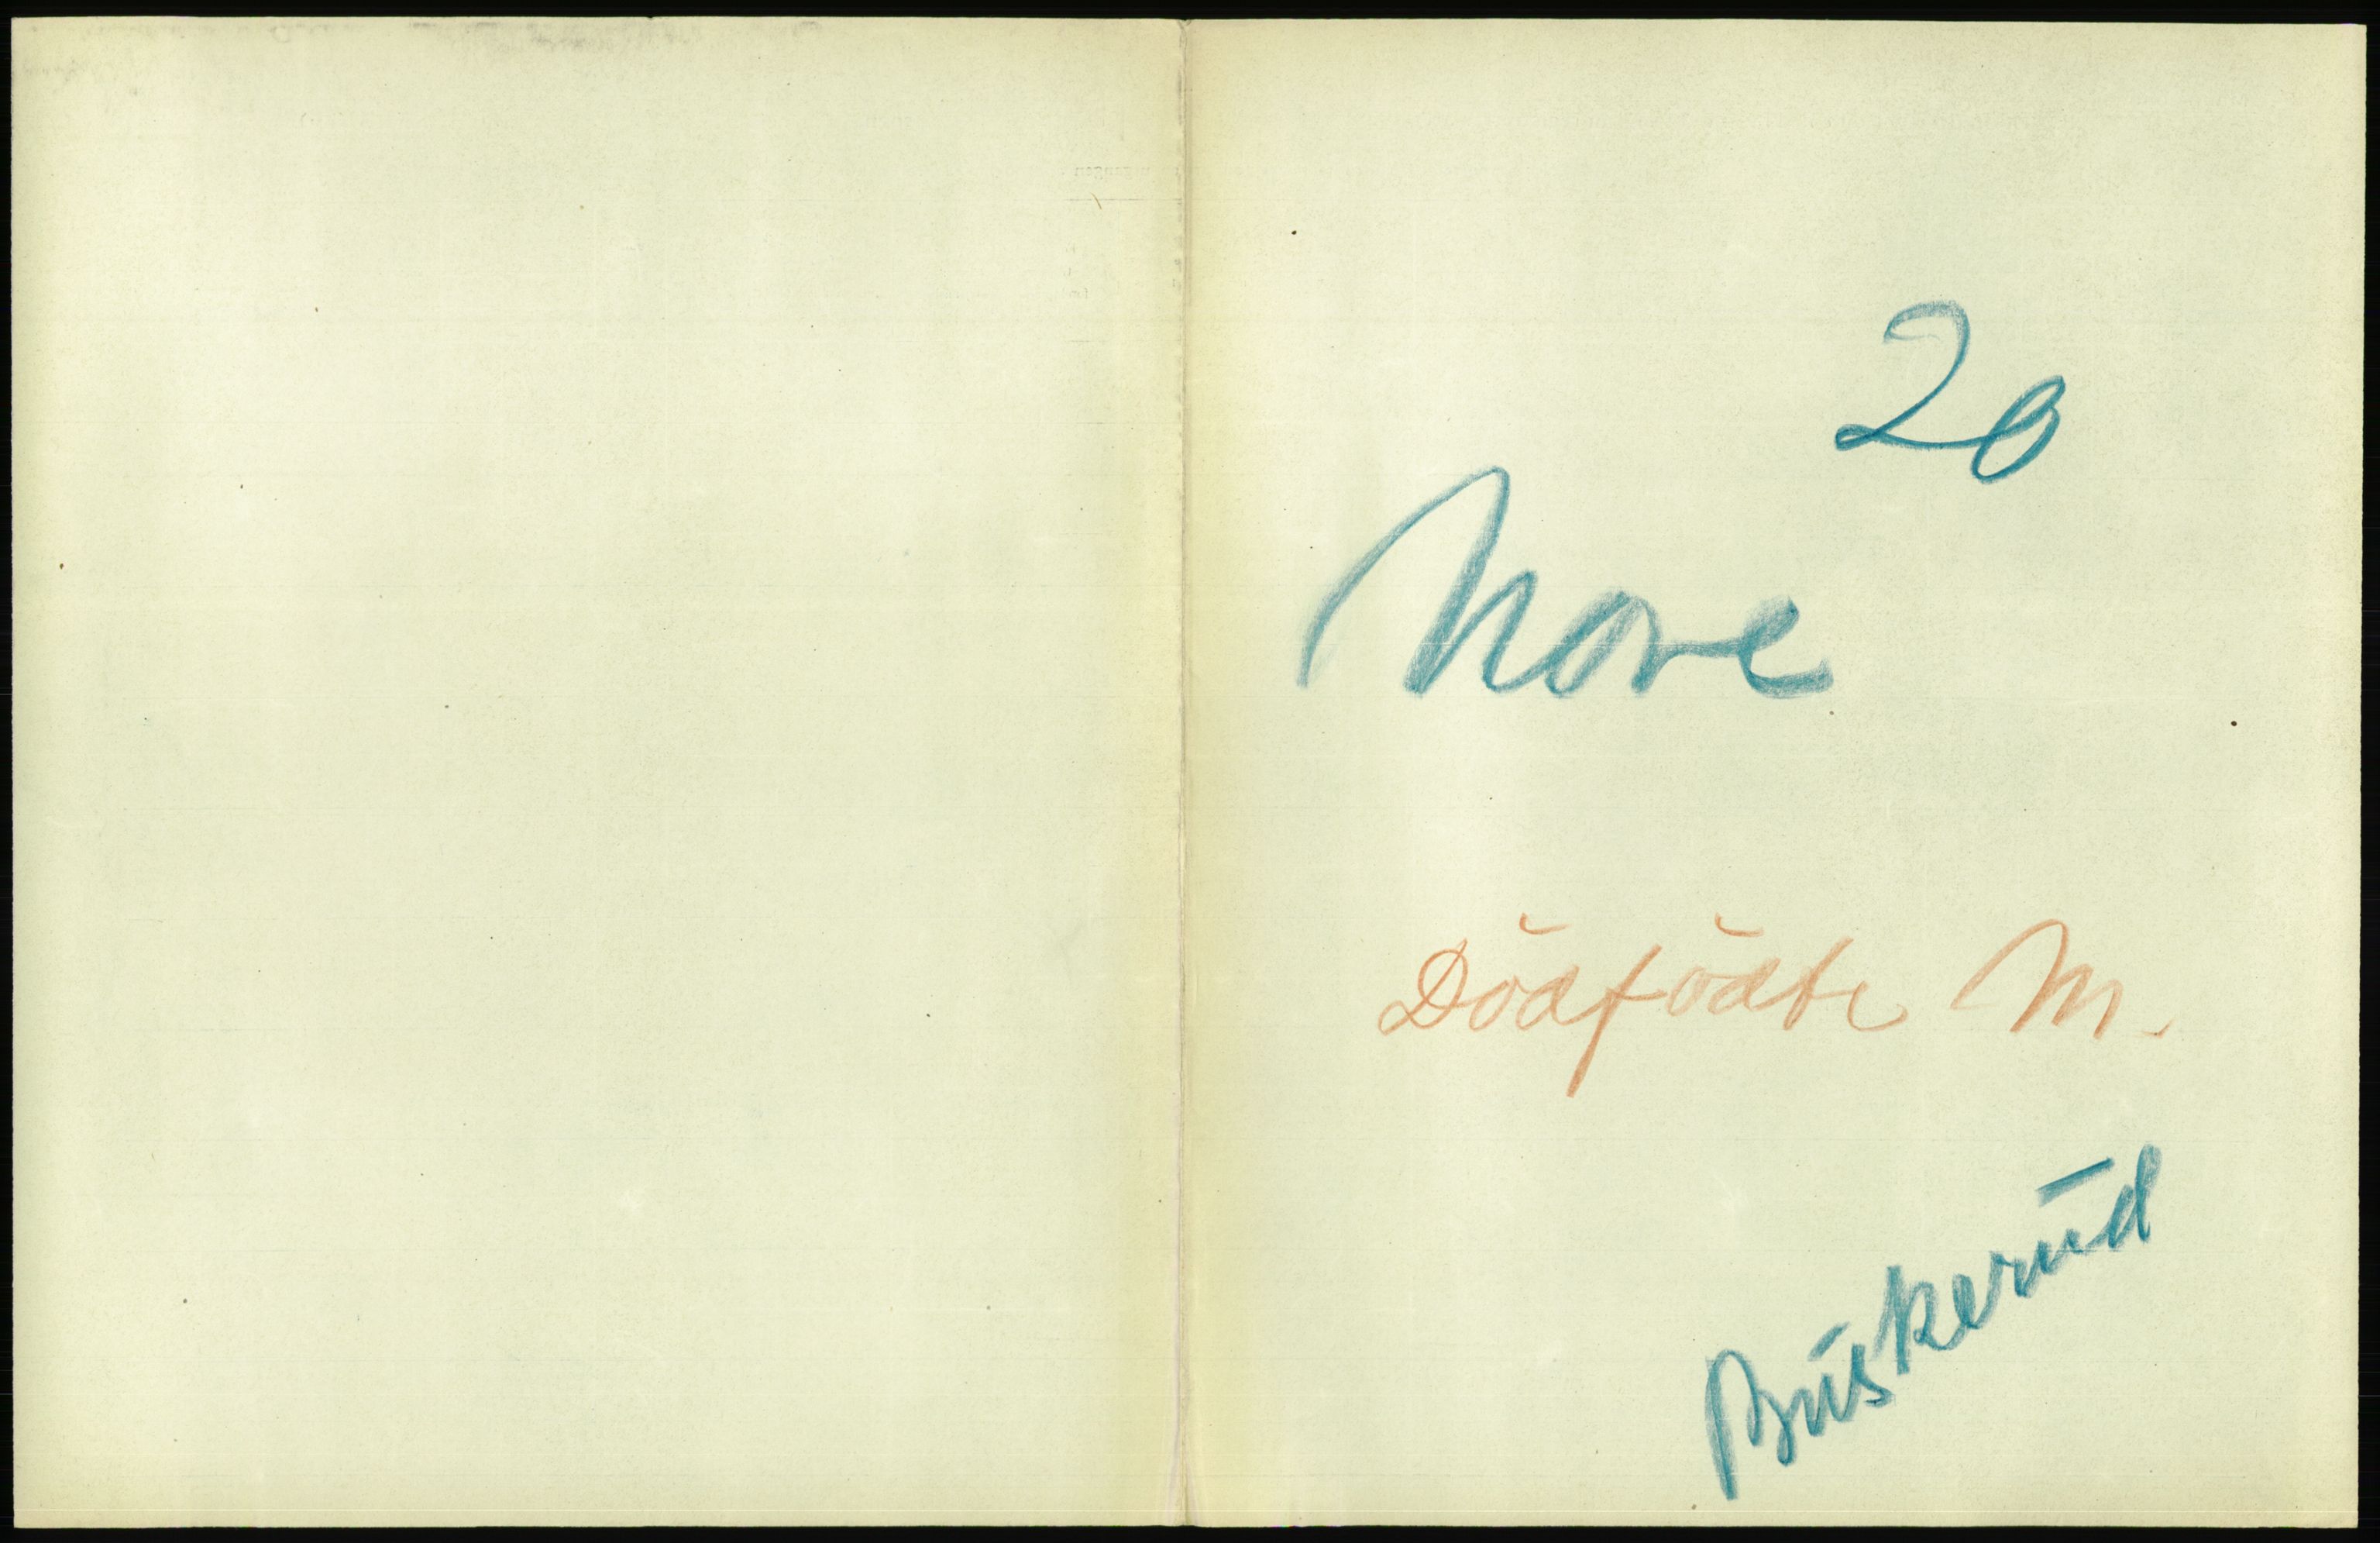 20
Nore
Dödfödte M.
Buskerud